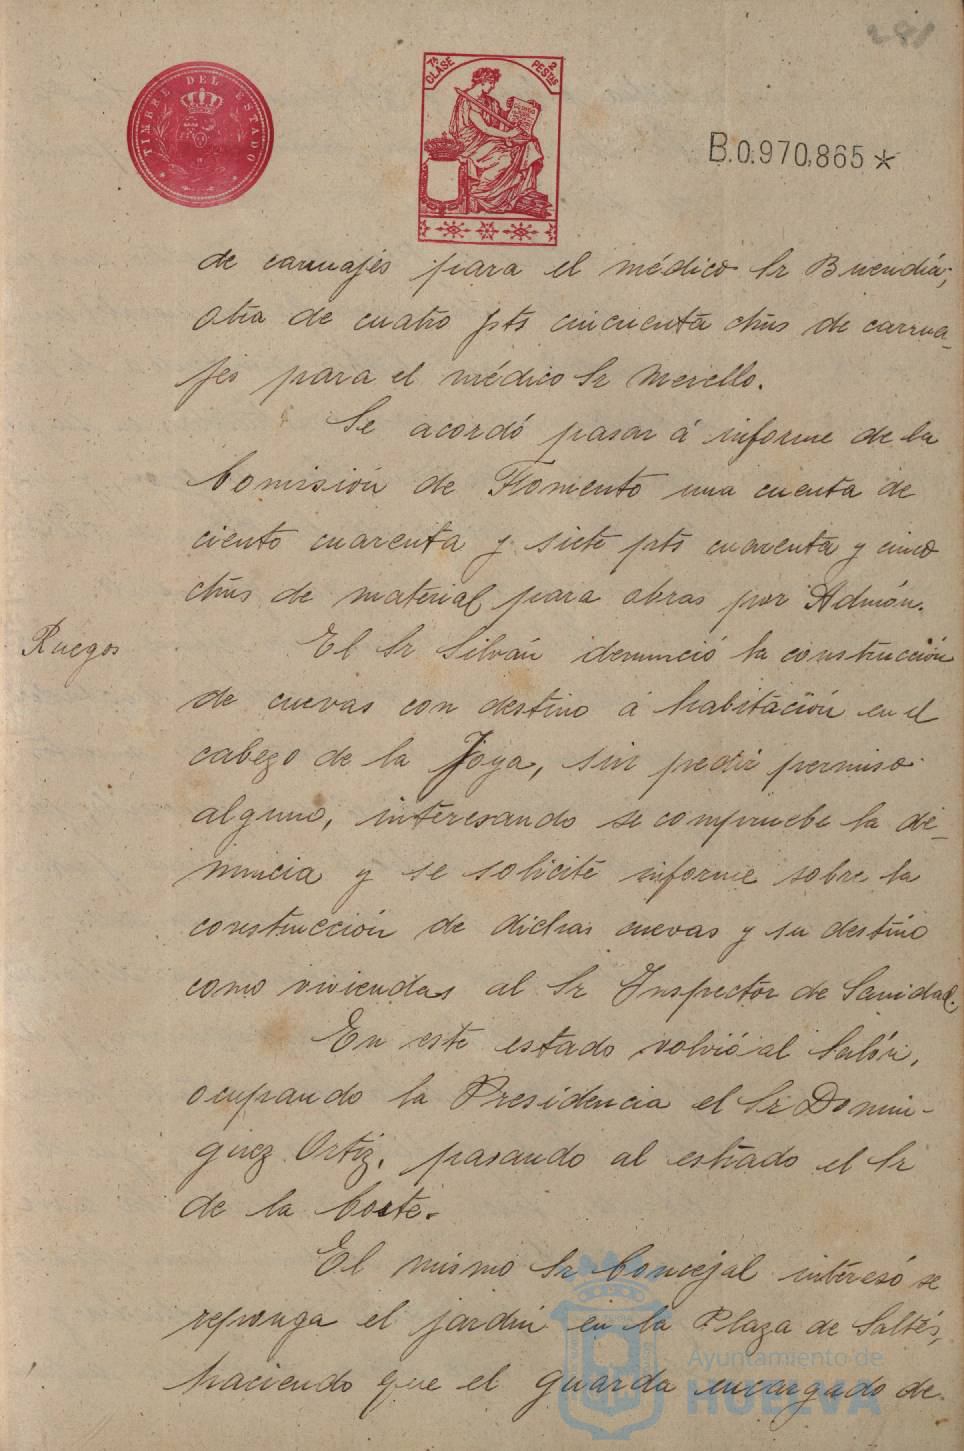 281
TIMBRE DEL ESTADO
7ª CLASE
2 PESTAS
B.0.970.865*
de carruajes para el médico Sr Buendía;
otra de cuatro pts cincuenta cts de carrua-
jes para el médico Sr Merello.
Se acordó pasar á informe de la
Comisión de Fomento una cuenta de
ciento cuarenta y siete pts cuarenta y cinco
cts de material para obras por Admón.
Ruegos
El Sr Silván denunció la construcción
de cuevas con destino á habitación en el
cabezo de la Joya, sin pedir permiso
alguno, interesando se compruebe la de-
nuncia y se solicite informe sobre la
construcción de dichas cuevas y su destino
como viviendas al Sr Inspector de Sanidad.
En este estado volvió al Salón,
ocupando la Presidencia el Sr Domin-
guez Ortiz, pasando al estrado el Sr
de la Corte.
El mismo Sr Concejal interesó se
reponga el jardín en la Plaza de Saltés,
haciendo que el guarda encargado de
Ayuntamiento de
HUELVA